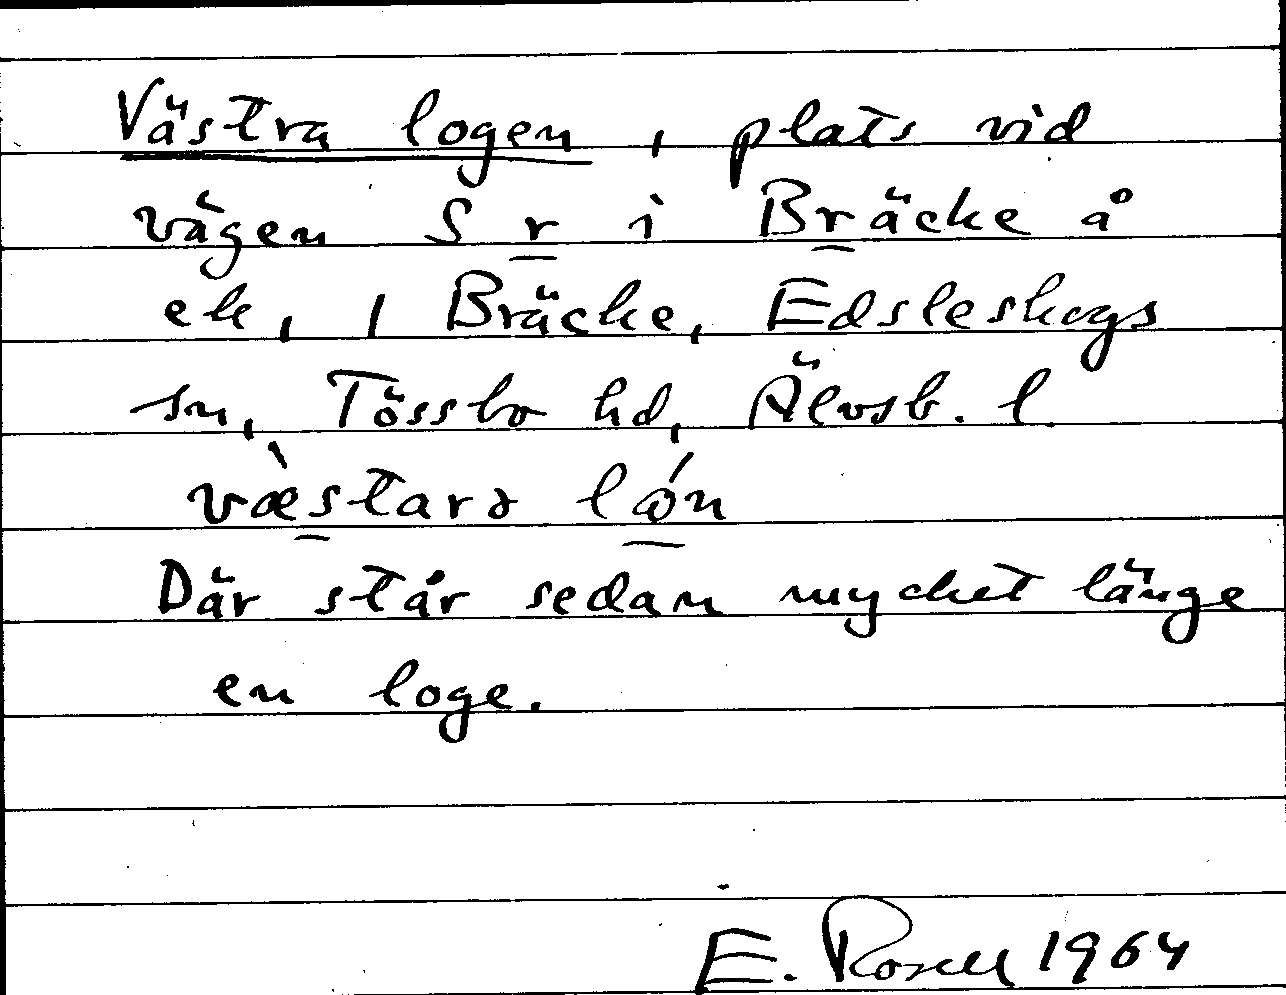 Västra logen, plats vid
vägen S r i Bräcke å
ek, 1 Bräcke, Edsleskogs
sn, Tössbo hd, Älvsb. l.
væ̀starə lǿn
Där står sedan mycket länge
en loge.
E. Rosell 1964